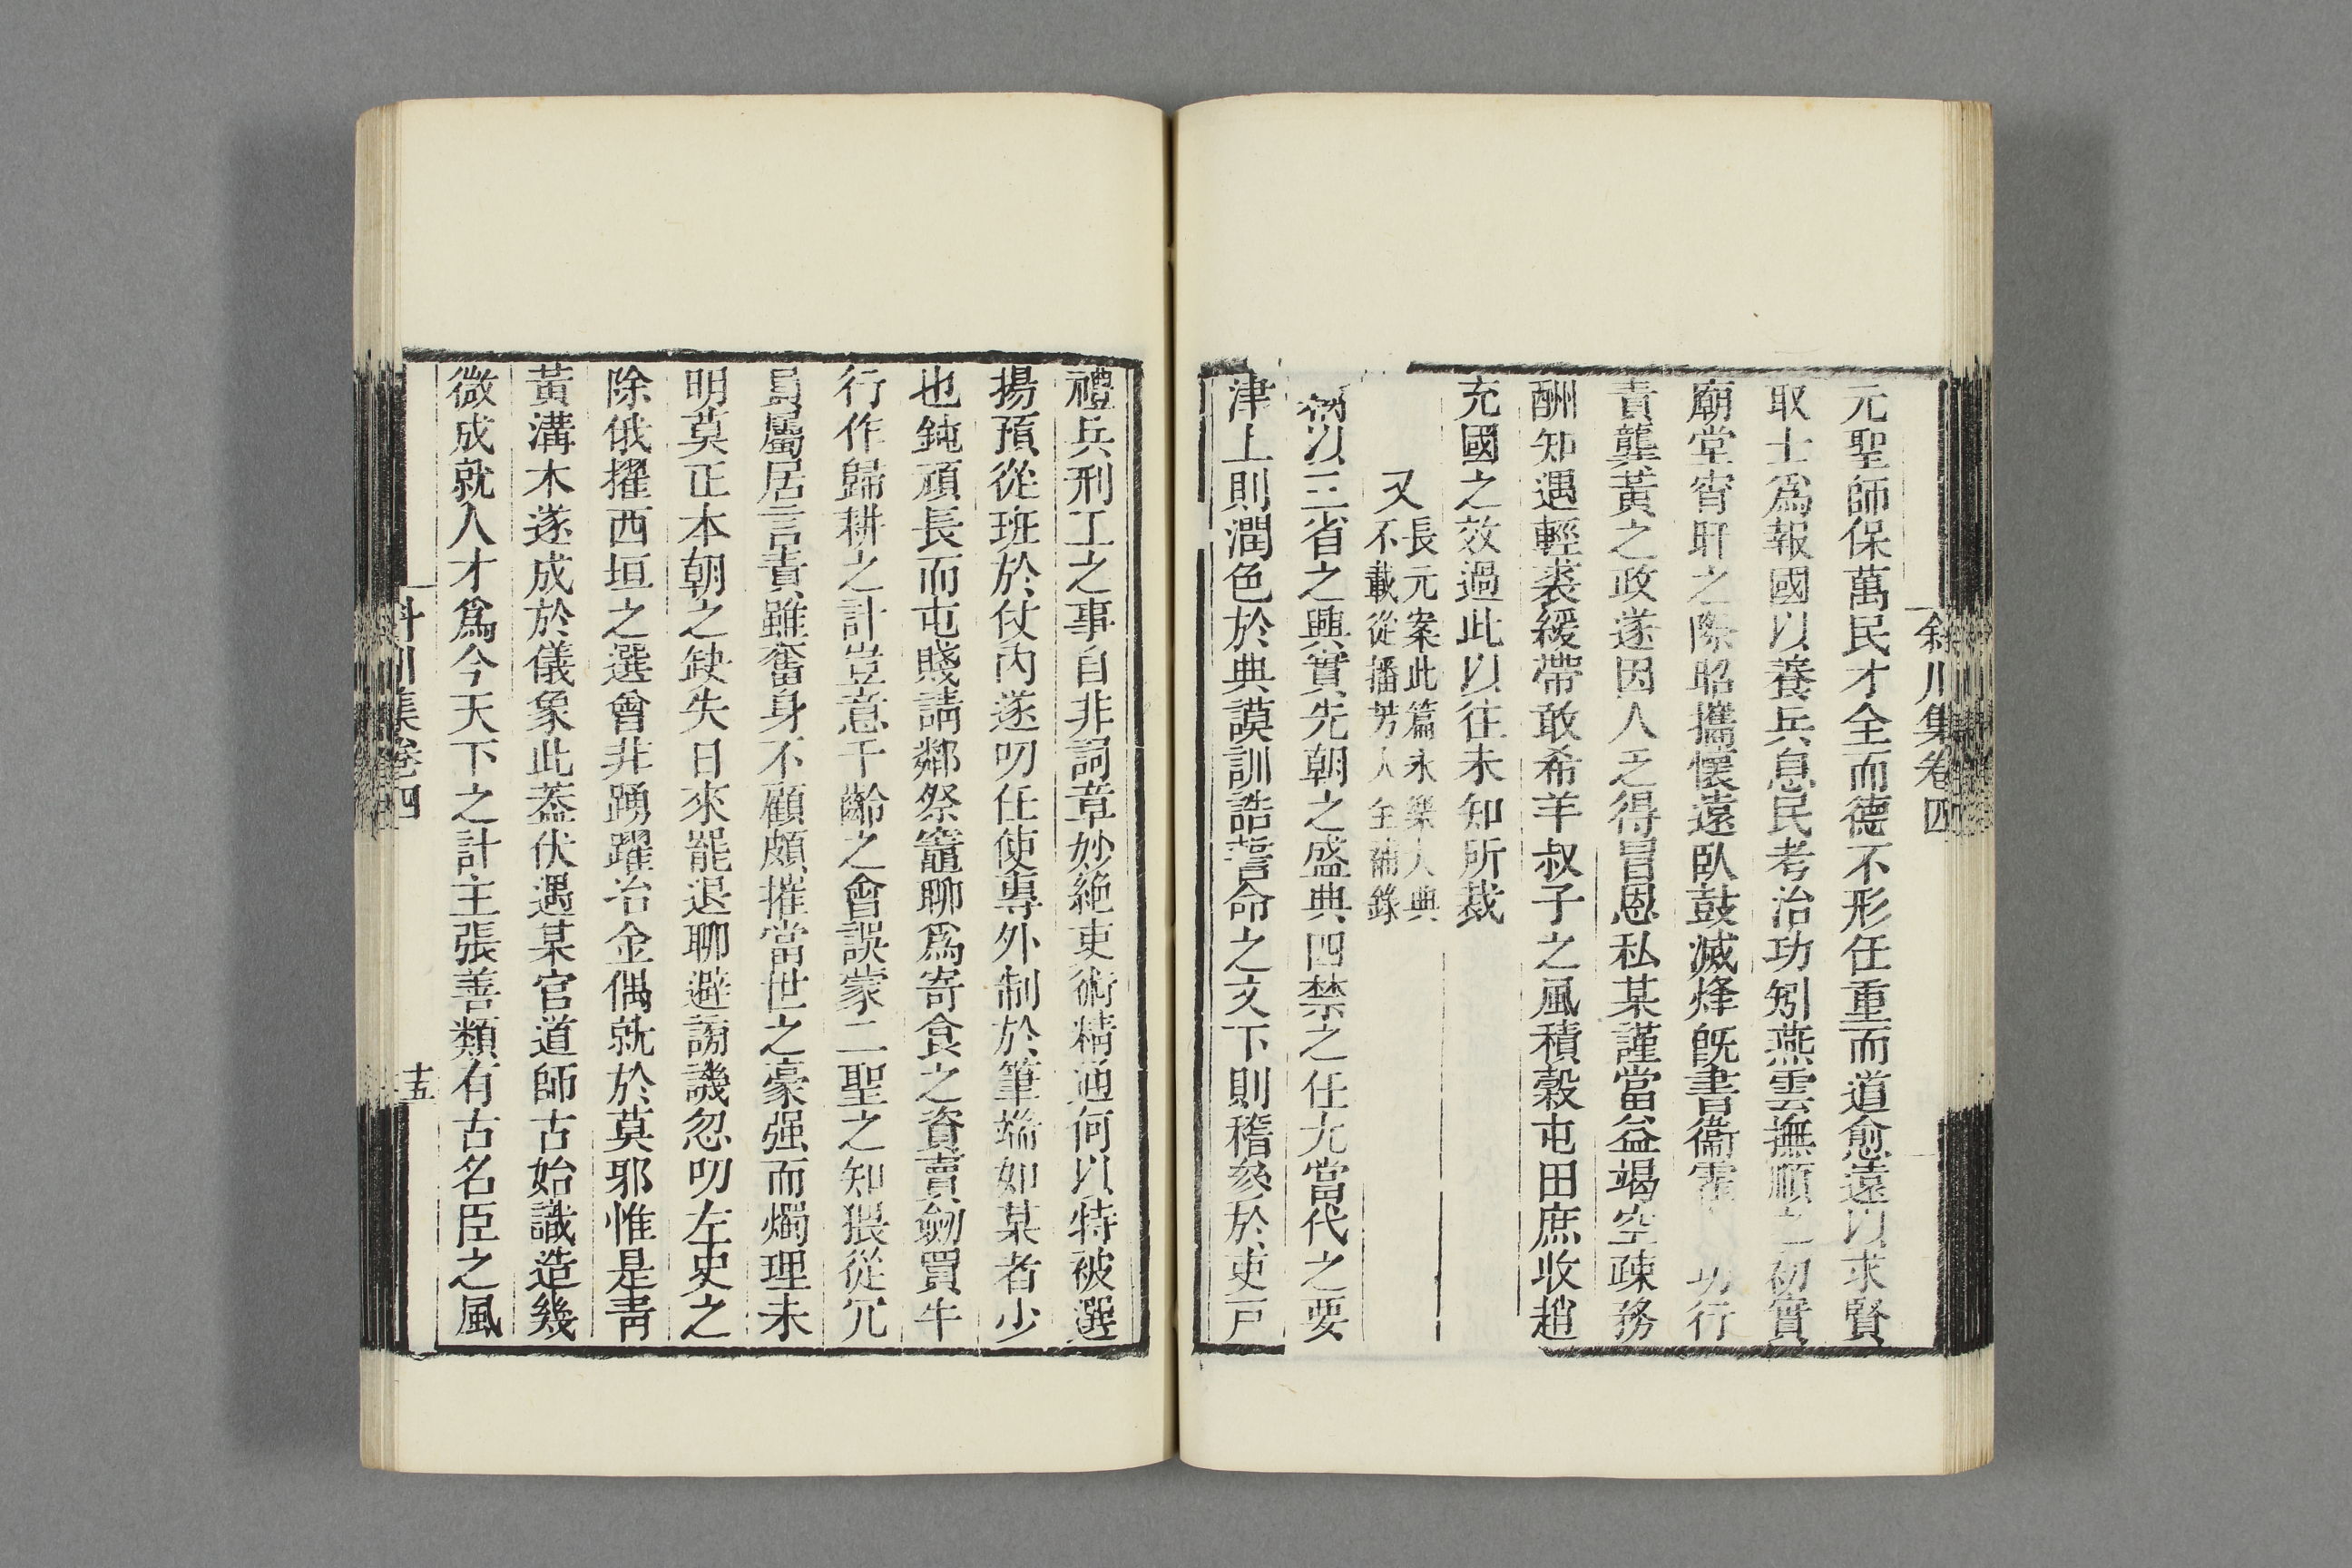 斜川集卷四
元聖師保萬民才全而德不形任重而道愈遠以求賢
取士爲報國以養兵息民考治功矧燕雲撫順之初實
廟堂宵旰之際昭攜懷遠臥鼓滅烽旣書衞霍功行
責龔黃之政遂因人乏得冒恩私某謹當益竭空疎務
酬知遇輕裘緩帶敢希羊叔子之風積穀屯田庶收趙
充國之效過此以往未知所裁
又
長元案此篇永樂大典
不載從播芳大全補錄
竊以三省之興實先朝之盛典四禁之任尤當代之要
津上則潤色於典謨訓誥誓命之文下則稽參於吏戸
禮兵刑工之事自非詞章妙絶吏術精通何以特被選
揚預從班於仗內遂叨任使專外制於筆端如某者少
也鈍頑長而屯賤請鄰祭竈聊爲寄食之資賣劒買牛
行作歸耕之計豈意千齡之會誤蒙二聖之知猥從冗
員屬居言責雖奮身不顧頗摧當世之豪强而燭理未
明莫正本朝之缺失日來罷退聊避謗譏忽叨左史之
除俄擢西垣之選會非踴躍冶金偶就於莫邪惟是靑
黃溝木遂成於儀象此葢伏遇某官道師古始識造幾
微成就人才爲今天下之計主張善類有古名臣之風
斜川集卷四
十五